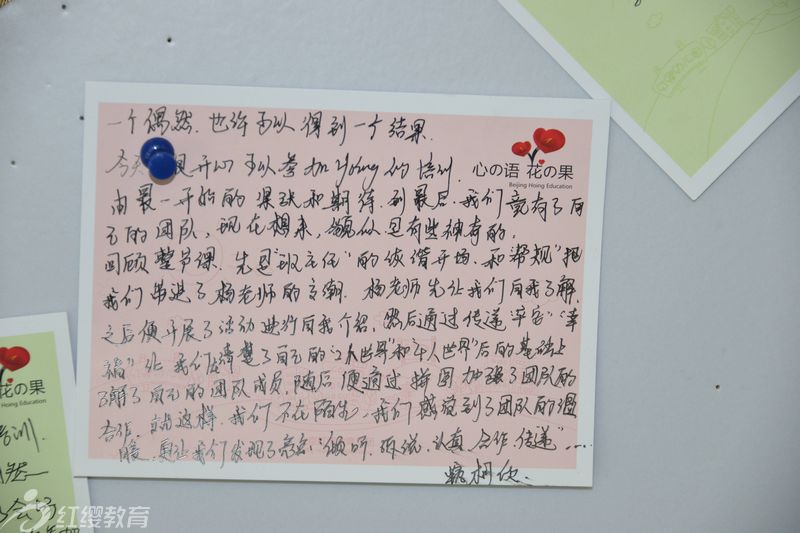 一个偶然，也许可以得到一个结果。
今天 很开心可以参加young的培训
由最一开始的紧张和期待到最后我们就有了自
己的团队，现在想来，貌似是有些神奇的。
回顾整节课，先是"班主任"的诙谐开场，和"帮规"把
我们带进了杨老师的 。杨老师先让我们自我了解，
之后便开展了活动进行自我介绍，然后通过传递"平安""幸
福"让我们在清楚了自己的" 世界"和"人世界"后的基础上
了解了自己的团队成员，随后便通过拼图加强了团队的
合作，就这样，我们不在陌生，我们感受到了团队的温
暖，更让我们发现了 "倾听、诉说、认真、合作、传递"……
心の语 花の果
Beijing Hoing Education
花の果
Hoing Education
培训
红缨教育